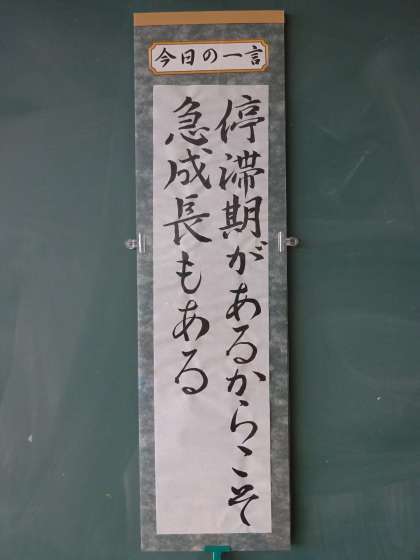 今日の一言
停滞期があるからこそ
急成長もある